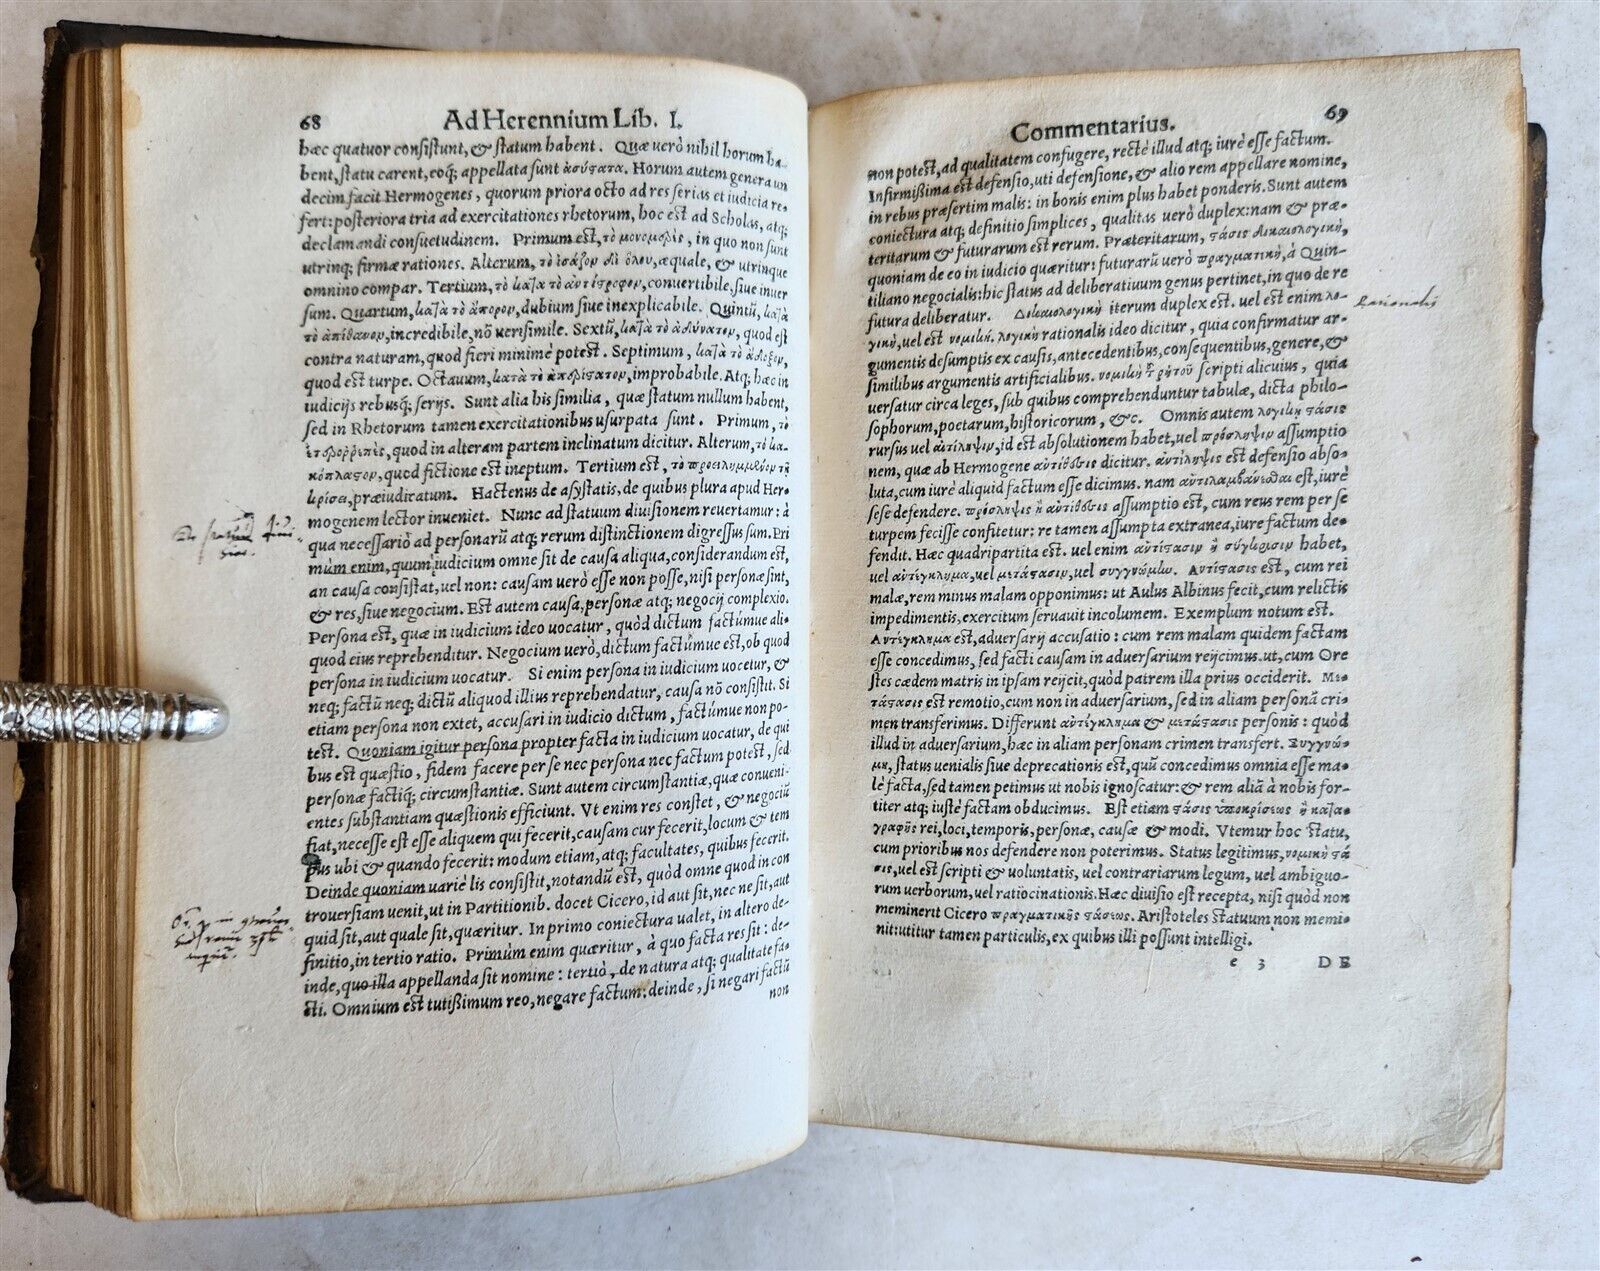 68 Ad Herennium Lib. I.
hæc quatuor consistunt, & statum habent. Quæ uerò nihil horum ha-
bent, statu carent, eoq; appellata sunt ἀσύστατα. Horum autem genera un
decim facit Hermogenes, quorum priora octo ad res serias et iudicia re-
fert: posteriora tria ad exercitationes rhetorum, hoc est ad Scholas, atq;
declamandi consuetudinem. Primum est, τὸ μονομερὲς, in quo non sunt
utrinq; firmæ rationes. Alterum, τὸ ἰσάζον δι' ὅλου, æquale, & utrinque
omnino compar. Tertium, τὸ κατὰ τὸ ἀντίστροφον, conuertibile, siue inuer
sum. Quartum, κατὰ τὸ ἄπορον, dubium siue inexplicabile. Quintũ, κατὰ
τὸ ἀπίθανον, incredibile, nõ uerisimile. Sextũ, κατὰ τὸ ἀδύνατον, quod est
contra naturam, quod fieri minimè potest. Septimum, κατὰ τὸ ἄδοξον,
quod est turpe. Octauum, κατὰ τὸ ἀπερίστατον, improbabile. Atq; hæc in
iudicijs rebusq; serijs. Sunt alia his similia, quæ statum nullum habent,
sed in Rhetorum tamen exercitationibus usurpata sunt. Primum, τὸ
ἑτεροῤῥεπὲς, quod in alteram partem inclinatum dicitur. Alterum, τὸ κα-
κόπλαστον, quod fictione est ineptum. Tertium est, τὸ προειλημμένον τῇ
κρίσει, præiudicatum. Hactenus de asystatis, de quibus plura apud Her-
mogenem lector inueniet. Nunc ad statuum diuisionem reuertamur: à
qua necessariò ad personarũ atq; rerum distinctionem digressus sum. Pri
mùm enim, quum iudicium omne sit de causa aliqua, considerandum est,
an causa consistat, uel non: causam uerò esse non posse, nisi personæ sint,
& res, siue negocium. Est autem causa, personæ atq; negocij complexio.
Persona est, quæ in iudicium ideo uocatur, quòd dictum factúmue ali-
quod eius reprehenditur. Negocium uerò, dictum factúmue est, ob quod
persona in iudicium uocatur. Si enim persona in iudicium uocetur, &
neq; factũ neq; dictũ aliquod illius reprehendatur, causa nõ consistit. Si
etiam persona non extet, accusari in iudicio dictum, factúmue non po-
test. Quoniam igitur persona propter facta in iudicium uocatur, de qui
bus est quæstio, fidem facere per se nec persona nec factum potest, sed
personæ factiq; circumstantiæ. Sunt autem circumstantiæ, quæ conueni-
entes substantiam quæstionis efficiunt. Vt enim res constet, & negociũ
fiat, necesse est esse aliquem qui fecerit, causam cur fecerit, locum & tem
pus ubi & quando fecerit: modum etiam, atq; facultates, quibus fecerit.
Deinde quoniam uariè lis consistit, notandũ est, quòd omne quod in con
trouersiam uenit, ut in Partitionib. docet Cicero, id aut sit, nec ne sit, aut
quid sit, aut quale sit, quæritur. In primo coniectura ualet, in altero de-
finitio, in tertio ratio. Primùm enim quæritur, à quo facta res sit: de-
inde, quo illa appellanda sit nomine: tertiò, de natura atq; qualitate fa-
cti. Omnium est tutißimum reo, negare factum: deinde, si negari factũ
non
Commentarius. 69
non potest, ad qualitatem confugere, rectè illud atq; iurè esse factum.
Infirmißima est defensio, uti defensione, & alio rem appellare nomine,
in rebus præsertim malis: in bonis enim plus habet ponderis. Sunt autem
coniectura atq; definitio simplices, qualitas uerò duplex: nam & præ-
teritarum & futurarum est rerum. Præteritarum, στάσις δικαιολογικὴ,
quoniam de eo in iudicio quæritur: futurarũ uerò πραγματικὴ, à Quin-
tiliano negocialis: hic status ad deliberatiuum genus pertinet, in quo de re
futura deliberatur. Δικαιολογικὴ iterum duplex est. uel est enim λο-
γικὴ, uel est νομικὴ. λογικὴ rationalis ideo dicitur, quia confirmatur ar-
gumentis desumptis ex causis, antecedentibus, consequentibus, genere, &
similibus argumentis artificialibus. νομικὴ scripti alicuius, quia
uersatur circa leges, sub quibus comprehenduntur tabulæ, dicta philo-
sophorum, poetarum, historicorum, &c. Omnis autem λογικὴ στάσις
rursus uel ἀντίληψιν, id est absolutionem habet, uel πρόσληψιν assumptio
nem, quæ ab Hermogene ἀντίθεσις dicitur. ἀντίληψις est defensio abso-
luta, cum iurè aliquid factum esse dicimus. nam ἀντιλαμβάνεσθαι est, iurè
sese defendere. πρόσληψις ἢ ἀντίθεσις assumptio est, cum reus rem per se
turpem fecisse confitetur: re tamen assumpta extranea, iure factum de-
fendit. Hæc quadripartita est. uel enim ἀντίστασιν ἢ σύγκρισιν habet,
uel ἀντέγκλημα, uel μετάστασιν, uel συγγνώμην. Ἀντίστασις est, cum rei
malæ, rem minus malam opponimus: ut Aulus Albinus fecit, cum relictis
impedimentis, exercitum seruauit incolumem. Exemplum notum est.
Ἀντέγκλημα est, aduersarij accusatio: cum rem malam quidem factam
esse concedimus, sed facti causam in aduersarium reijcimus. ut, cum Ore
stes cædem matris in ipsam reijcit, quòd patrem illa prius occiderit. Με-
τάστασις est remotio, cum non in aduersarium, sed in aliam personã cri-
men transferimus. Differunt ἀντέγκλημα & μετάστασις personis: quòd
illud in aduersarium, hæc in aliam personam crimen transfert. Συγγνώ-
μη, status uenialis siue deprecationis est, quũ concedimus omnia esse ma-
lè facta, sed tamen petimus ut nobis ignoscatur: & rem aliã à nobis for-
titer atq; iustè factam obducimus. Est etiam στάσις ὑποκρίσεως ἢ κατα-
γραφῆς rei, loci, temporis, personæ, causæ & modi. Vtemur hoc statu,
cum prioribus nos defendere non poterimus. Status legitimus, νομικὴ στά
σις, uel est scripti & uoluntatis, uel contrariarum legum, uel ambiguo-
rum uerborum, uel ratiocinationis. Hæc diuisio est recepta, nisi quòd non
meminerit Cicero πραγματικῆς στάσεως. Aristoteles statuum non memi-
nit: utitur tamen particulis, ex quibus illi possunt intelligi.
e 3 DE
Rationalis